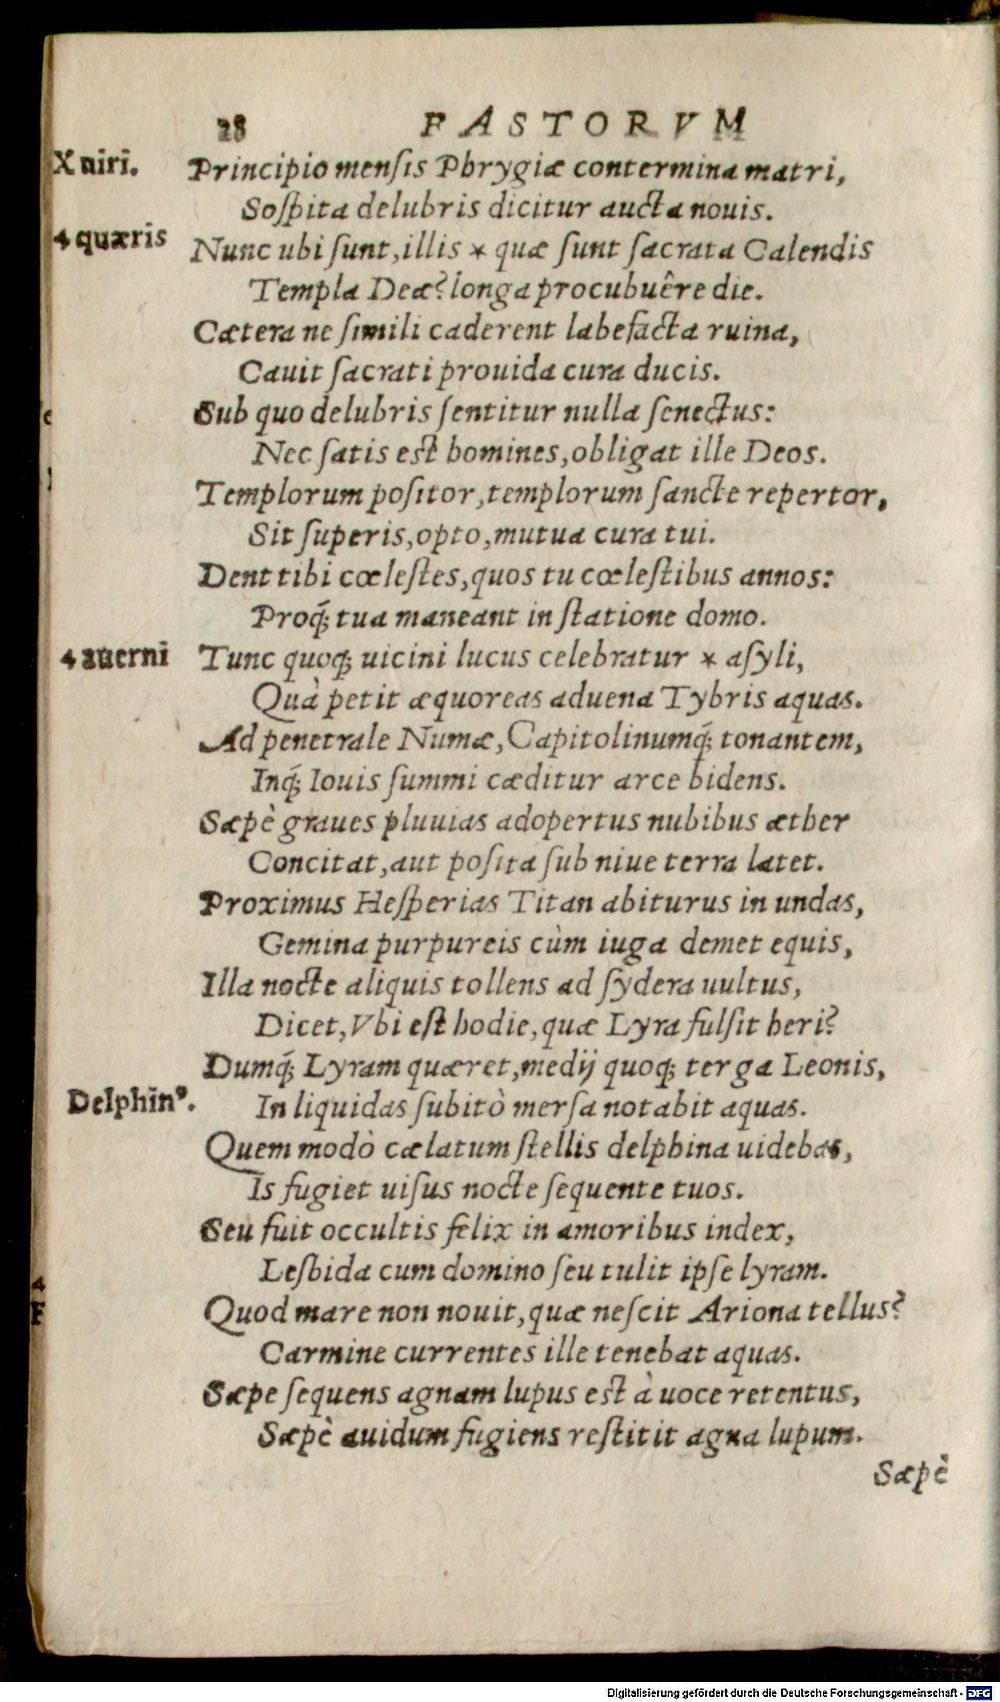 28 FASTORVM
X uiri.
Principio mensis Phrygiæ contermina matri,
Sospita delubris dicitur aucta nouis.
4 quæris
Nunc ubi sunt, illis * quæ sunt sacrata Calendis
Templa Deæ? longa procubuêre die.
Cætera ne simili caderent labefacta ruina,
Cauit sacrati prouida cura ducis.
Sub quo delubris sentitur nulla senectus:
Nec satis est homines, obligat ille Deos.
Templorum positor, templorum sancte repertor,
Sit superis, opto, mutua cura tui.
Dent tibi cœlestes, quos tu cœlestibus annos:
Proq́; tua maneant in statione domo.
4 auernī
Tunc quoq; uicini lucus celebratur * asyli,
Quà petit æquoreas aduena Tybris aquas.
Ad penetrale Numæ, Capitolinumq́; tonantem,
Inq́; Iouis summi cæditur arce bidens.
Sæpè graues pluuias adopertus nubibus æther
Concitat, aut posita sub niue terra latet.
Proximus Hesperias Titan abiturus in undas,
Gemina purpureis cùm iuga demet equis,
Illa nocte aliquis tollens ad sydera uultus,
Dicet, Vbi est hodie, quæ Lyra fulsit heri?
Dumq́; Lyram quæret, medij quoq; terga Leonis,
Delphīnꝰ.
In liquidas subitò mersa notabit aquas.
Quem modò cælatum stellis delphina uidebas,
Is fugiet uisus nocte sequente tuos.
Seu fuit occultis felix in amoribus index,
Lesbida cum domino seu tulit ipse lyram.
Quod mare non nouit, quæ nescit Ariona tellus?
Carmine currentes ille tenebat aquas.
Sæpe sequens agnam lupus est à uoce retentus,
Sæpè auidum fugiens restitit agna lupum.
Sæpè
Digitalisierung gefördert durch die Deutsche Forschungsgemeinschaft - DFG